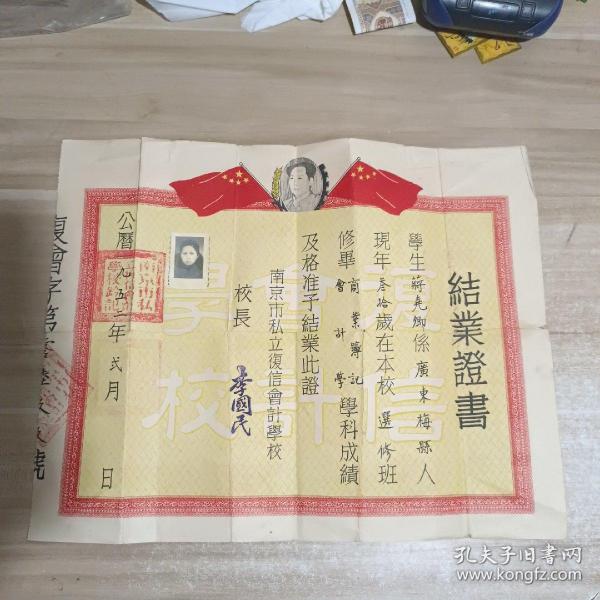 結業證書
學生蔣堯卿係廣東梅縣人
現年叁拾歲在本校選修班
修畢商業簿記會計學學科成績
及格准予結業此證
南京市私立復信會計學校
校長
李國民
公曆一九五二年弍月 日
復信會計學校
復會字第
號
孔夫子旧书网
www.kongfz.com